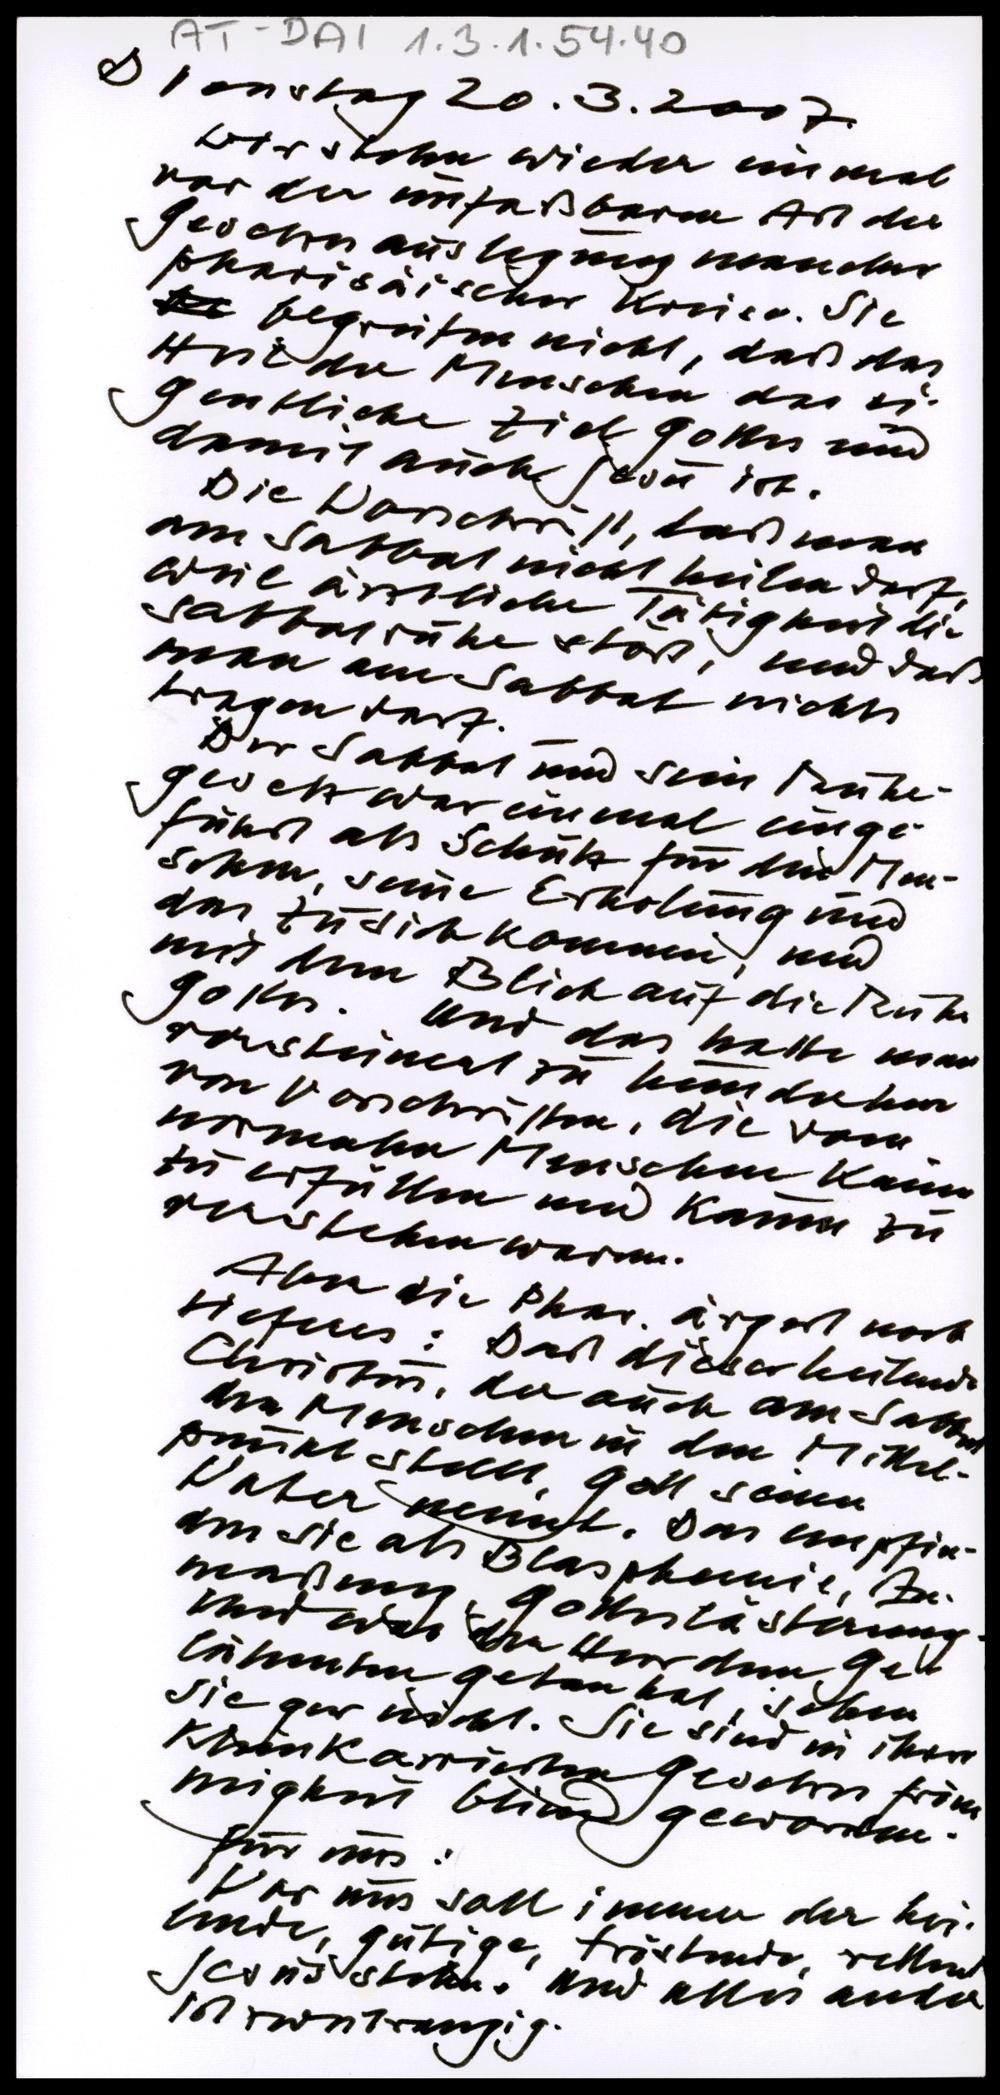 AT-DAI 1.3.1.54.40
Dienstag 20.3.2007.
Wir stehn wieder einmal
vor der unfaßbaren Art der
Gesetzesauslegung mancher
pharisäischer Kreise. Sie
begreifen nicht, daß das
Heil der Menschen das ei-
gentliche Ziel Gottes und
damit auch Jesu ist.
Die Vorschrift, daß man
am Sabbat nicht heilen darf,
weil ärztliche Tätigkeit die
Sabbatruhe stört, und daß
man am Sabbat nichts
tragen darf.
Der Sabbat und sein Ruhe-
gesetz war einmal einge-
führt als Schutz für den Men-
schen, seine Erholung und
das zu sich kommen, und
mit dem Blick auf die Ruhe
Gottes. Und das hatte man
versteinert zu hunderten
von Vorschriften, die vom
normalen Menschen kaum
zu erfüllen und kaum zu
verstehen waren.
Aber die Phar. ärgert noch
tieferes: Daß dieser heilende
Christus, der auch am Sabbat
den Menschen in den Mittel-
punkt stellt, Gott seinen
Vater nennt. Das empfin-
den sie als Blasphemie, An-
maßung, Gotteslästerung.
Und was der Herr dem Ge-
lähmten getan hat, sehen
sie gar nicht. Sie sind in ihrer
kleinkarierten Gesetzesfröm
migkeit blind geworden.
Für uns:
Vor uns soll immer der hei-
lende, gütige, tröstende, rettende
Jesus stehn. Und alles andere
ist zweitrangig.